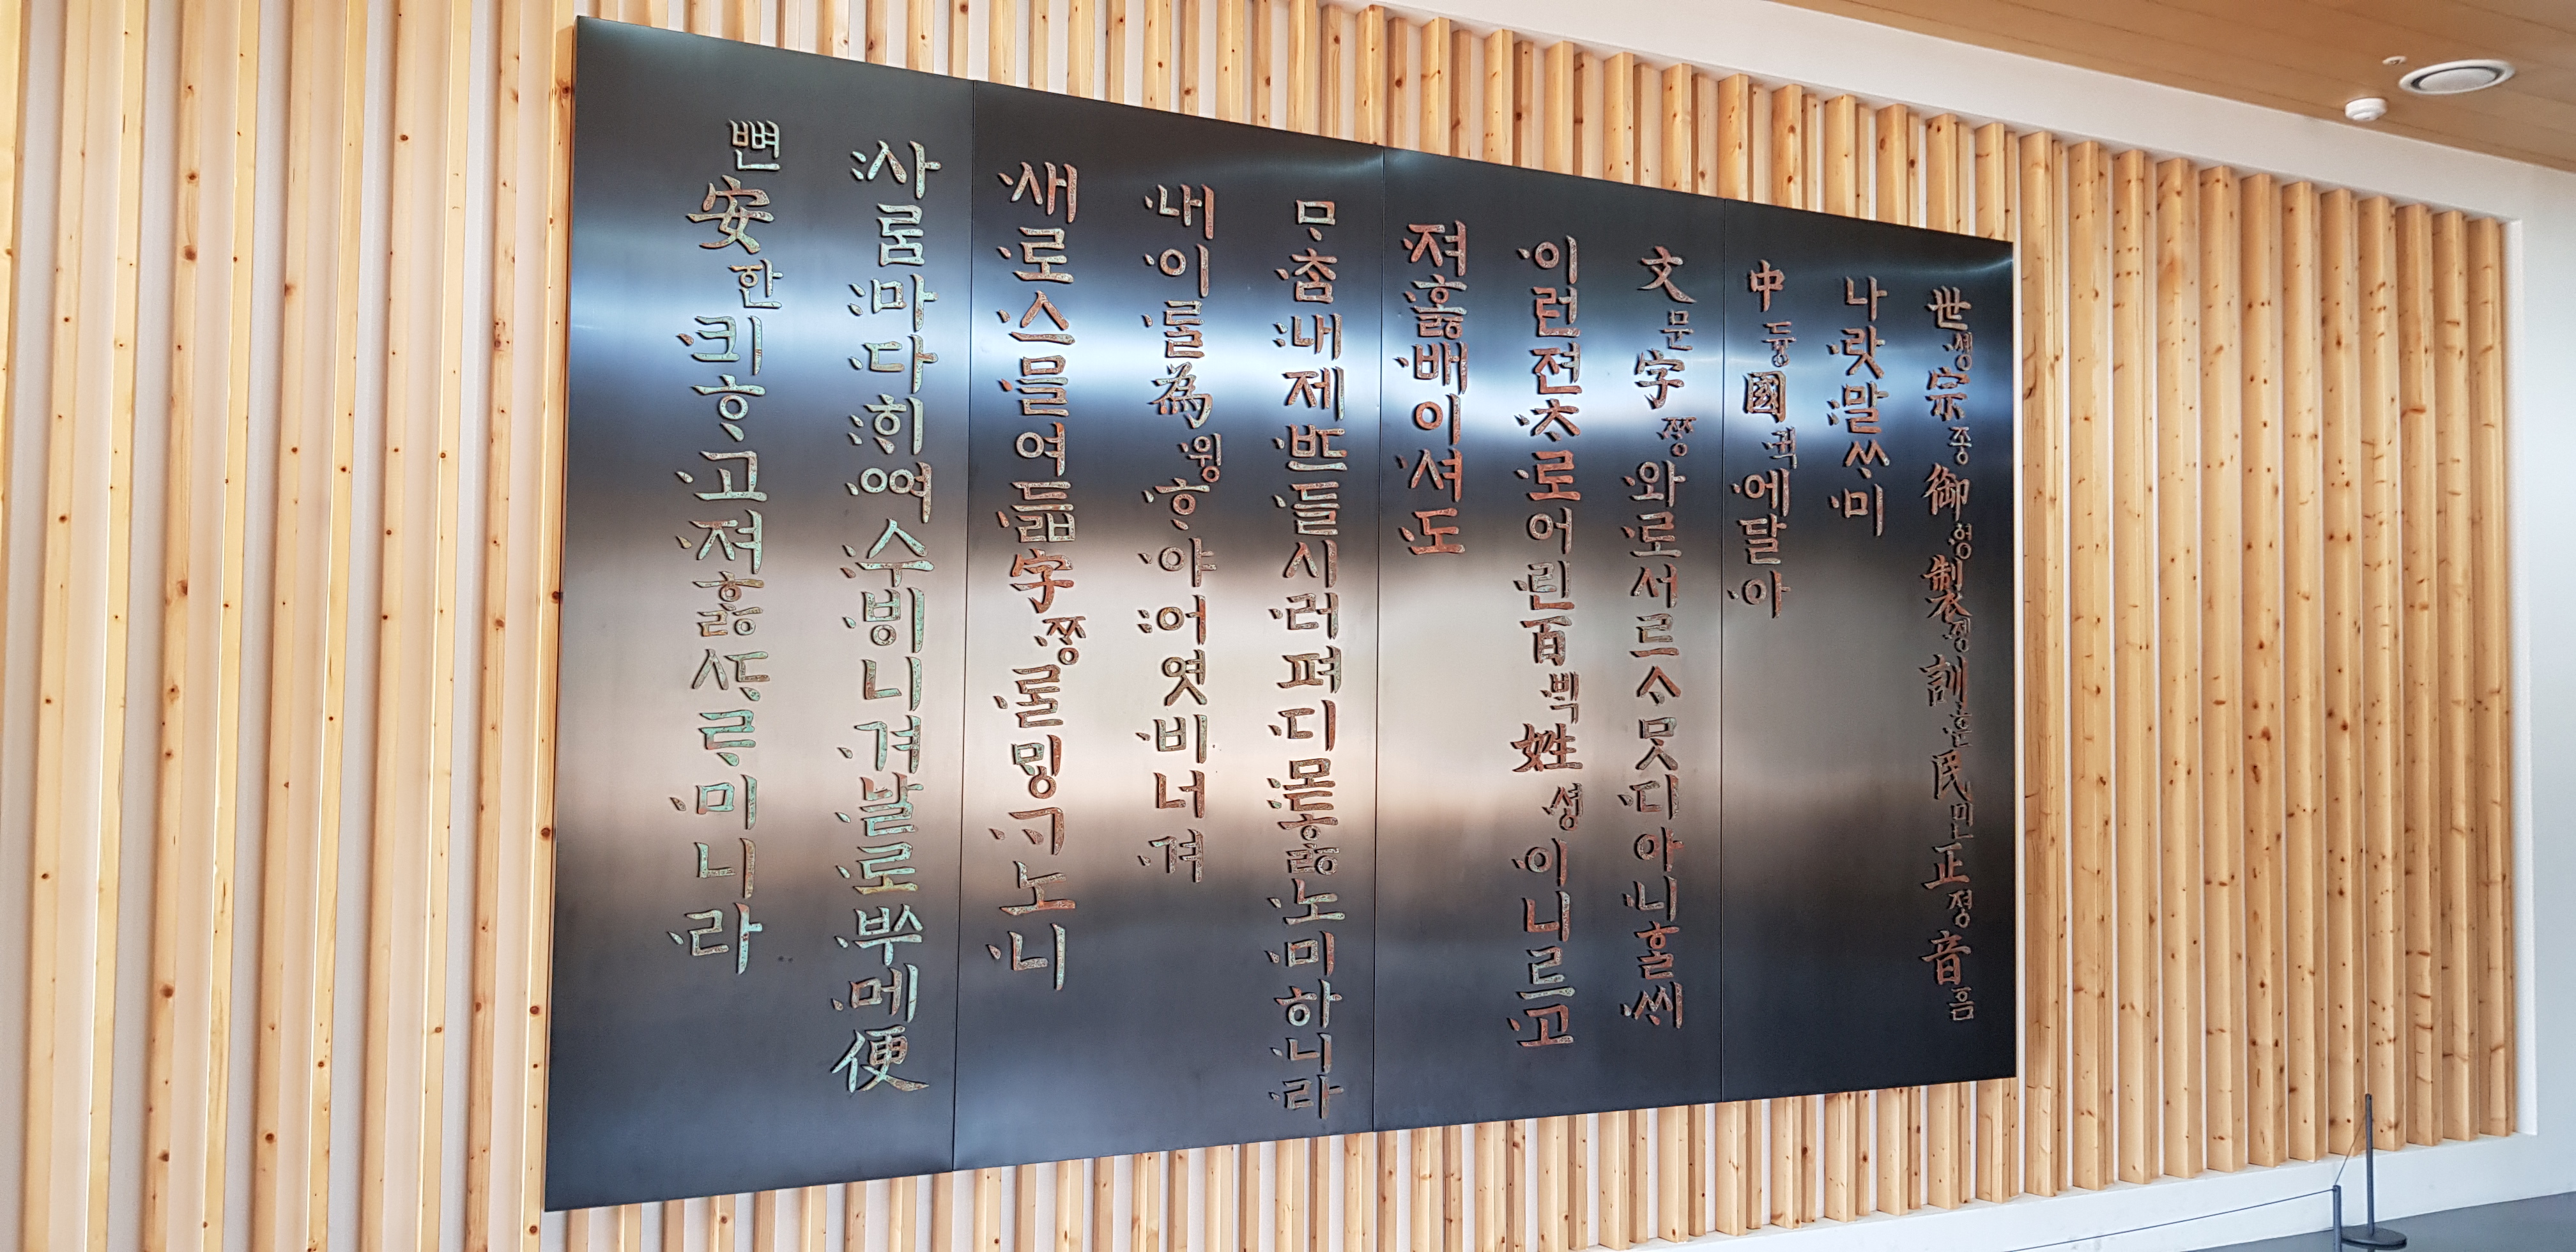 世솅宗종御엉製졩訓훈民민正졍音ᅙᅳᆷ
나랏말ᄊᆞ미
中듀ᇰ國귁에달아
文문字ᄍᆞᆼ와로서르ᄉᆞᄆᆞᆺ디아니ᄒᆞᆯᄊᆡ
이런젼ᄎᆞ로어린百ᄇᆡᆨ姓셔ᇰ이니르고
져호ᇙ배이셔도
ᄆᆞᄎᆞᆷ내제ᄠᅳ들시러펴디몯ᄒᆞᇙ노미하니라
내이ᄅᆞᆯ為윙ᄒᆞ야어엿비너겨
새로스믈여듧字ᄍᆞᆼᄅᆞᆯᄆᆡᇰᄀᆞ노니
사ᄅᆞᆷ마다ᄒᆡᅇᅧ수ᄫᅵ니겨날로ᄡᅮ메便
뼌安한킈ᄒᆞ고져ᄒᆞᇙᄯᆞᄅᆞ미니라